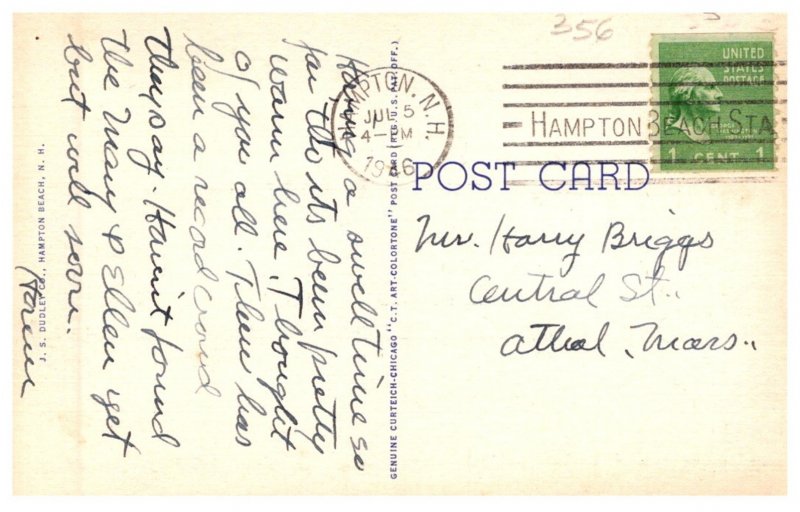 356
UNITED
STATES
POSTAGE
1 CENT 1
HAMPTON, N.H.
JUL 5
4-PM
1946
HAMPTON BEACH STA.
POST CARD
Mr. Harry Briggs
Central St.,
Athol, Mass.
Having a swell time so
far tho its been pretty
warm here. Thought
of you all. There has
been a record crowd
they say. Haven't found
the Mary & Ellen yet
but will soon.
GENUINE CURTEICH-CHICAGO "C. T. ART-COLORTONE" POST CARD (REG. U.S. PAT. OFF.)
J. S. DUDLEY CO., HAMPTON BEACH, N. H.